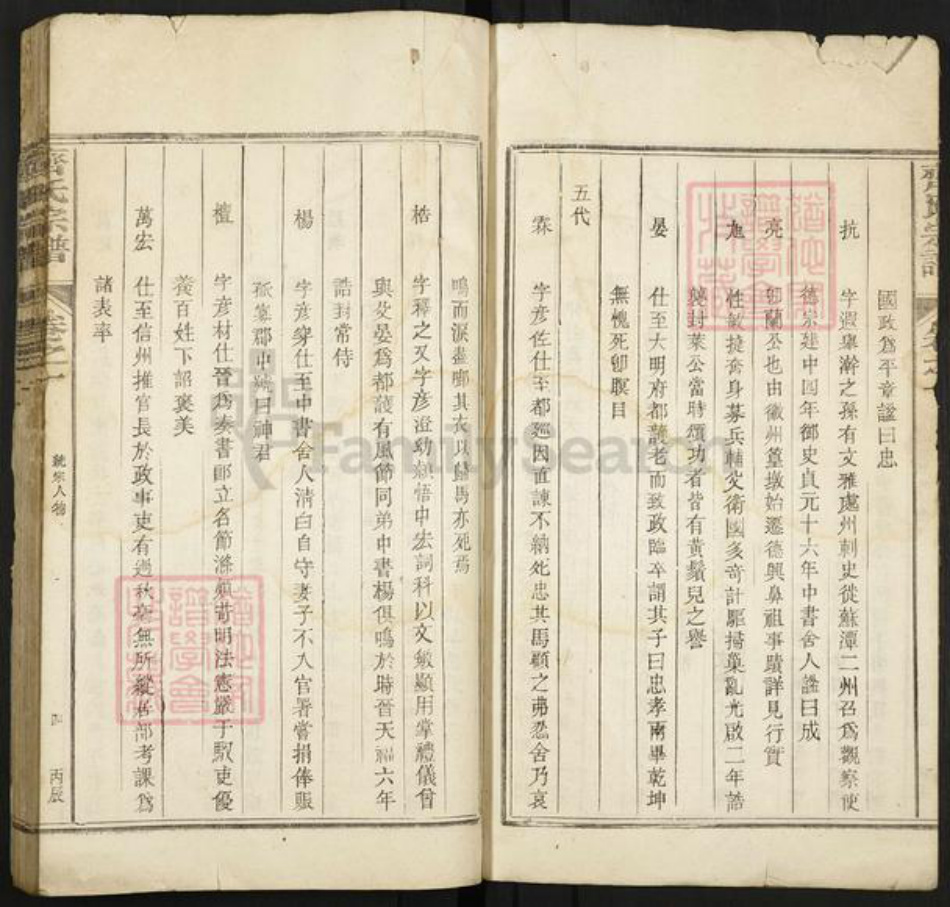 國政爲平章謚曰忠
抗 字遐舉澣之孫有文雅處州刺史徙蘇潭二州召爲觀察使
德宗建中四年御史貞元十六年中書舍人謚曰成
亮 卽蘭公也由徽州篁墩始遷德興鼻祖事蹟詳見行實
旭 性敏捷奮身募兵輔父衛國多奇計驅掃巢亂光啟二年誥
襲封萊公當時頌功者皆有黃鬚兒之譽
晏 仕至大明府都護老而致政臨卒謂其子曰忠孝兩畢乾坤
無愧死卽瞑目
五代
霖 字彥佐仕至都廵因直諫不納死忠其馬顧之弗忍舍乃哀
鳴而淚盡啣其衣以歸馬亦死焉
楛 字釋之又字彥澄幼穎悟中宏詞科以文敏顯用掌禮儀曾
與父晏爲都護有風節同弟中書楊俱鳴於時晉天福六年
誥封常侍
楊 字彥穿仕至中書舍人淸白自守妻子不入官署嘗捐俸賑
孤寡郡中號曰神君
檀 字彥材仕晉爲秦書郞立名節滌煩苛明法憲嚴于馭吏優
養百姓下詔褒美
萬宏 仕至信州推官長於政事吏有過秋毫無所縱居部考課爲
諸表率
齊氏宗譜
卷之一
統宗人物
四
丙辰
FamilySearch